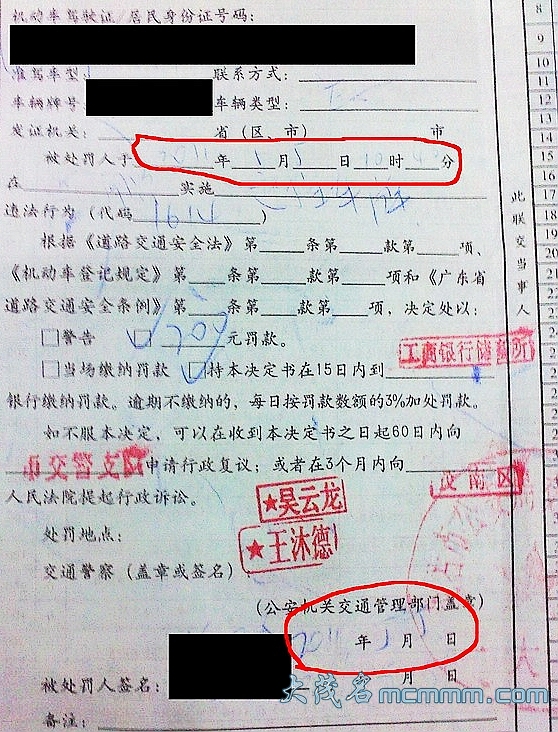 机动车驾驶证/居民身份证号码:
准驾车型: 联系方式:
车辆牌号: 车辆类型:
发证机关: 省(区、市) 市
被处罚人于 2011 年 月 日 10 时 分
在 实施
违法行为(代码 )
根据《道路交通安全法》第 条第 款第 项、
《机动车登记规定》第 条第 款第 项和《广东省
道路交通安全条例》第 条第 款第 项,决定处以:
□警告 □ 200 元罚款。
□当场缴纳罚款 □持本决定书在15日内到 工商银行储蓄所
银行缴纳罚款。逾期不缴纳的,每日按罚款数额的3%加处罚款。
如不服本决定,可以在收到本决定书之日起60日内向
市交警支队 申请行政复议;或者在3个月内向 茂南区
人民法院提起行政诉讼。
★吴云龙
处罚地点:
★王沐德
交通警察(盖章或签名)
(公安机关交通管理部门盖章)
2011 年 月 日
被处罚人签名: 年 月 日
备注:
此联交当事人
8
9
10
11
12
13
14
15
16
17
18
19
20
大茂名 mcmmm.com